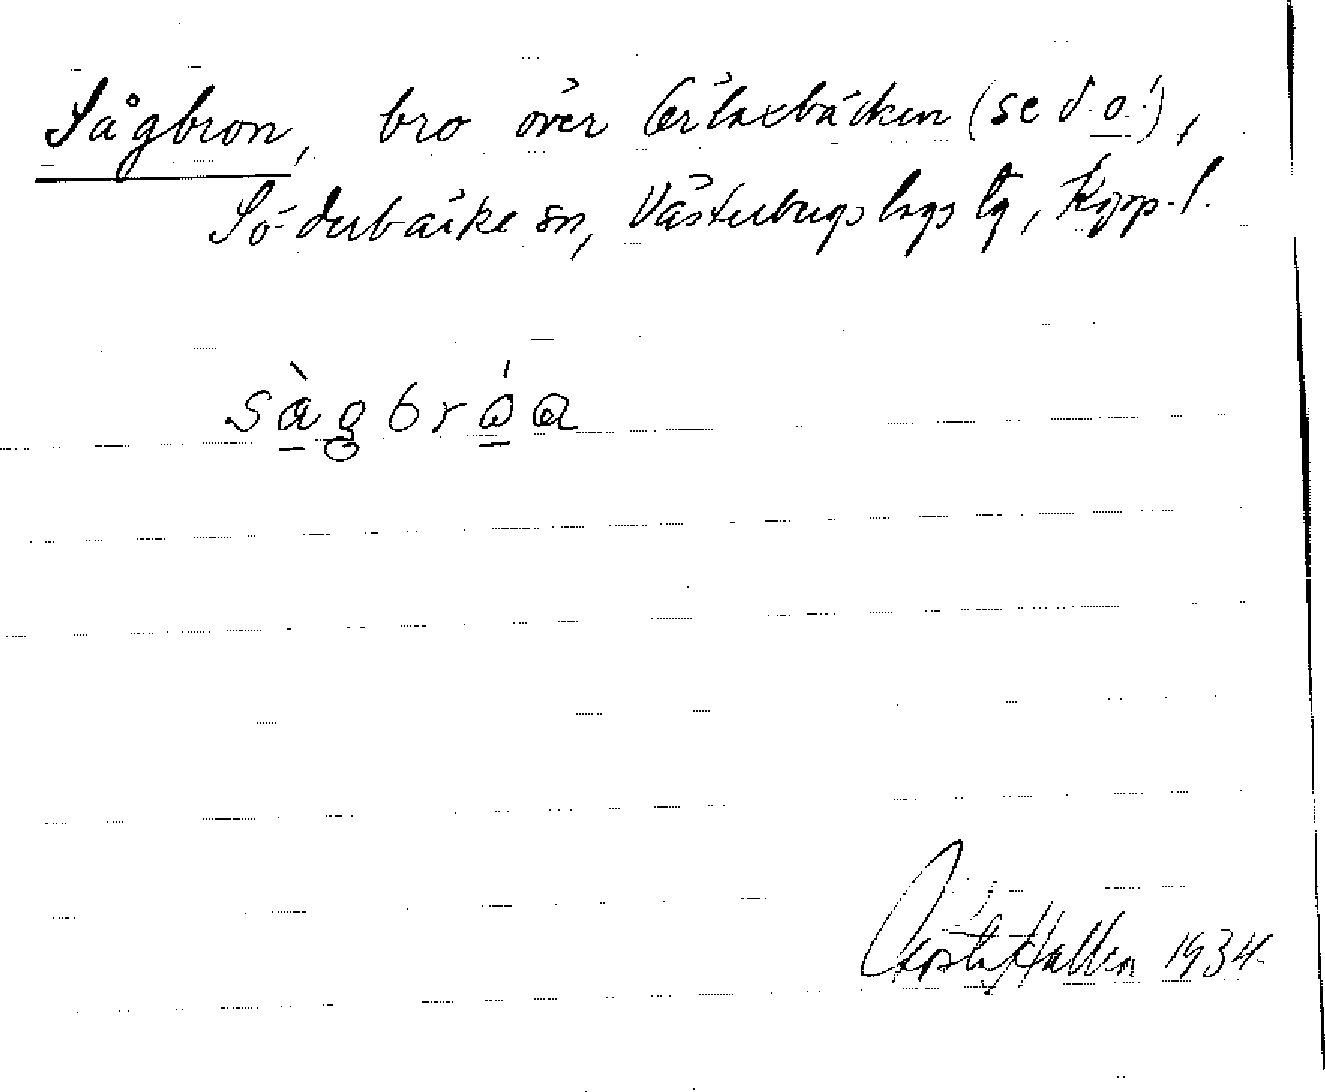 Sågbron, bro över Gerlaxbäcken (se d.o!),
Söderbärke sn, Västerbergslags tg, Kopp.l.
sàgbróa
Gösta Hallén 1934